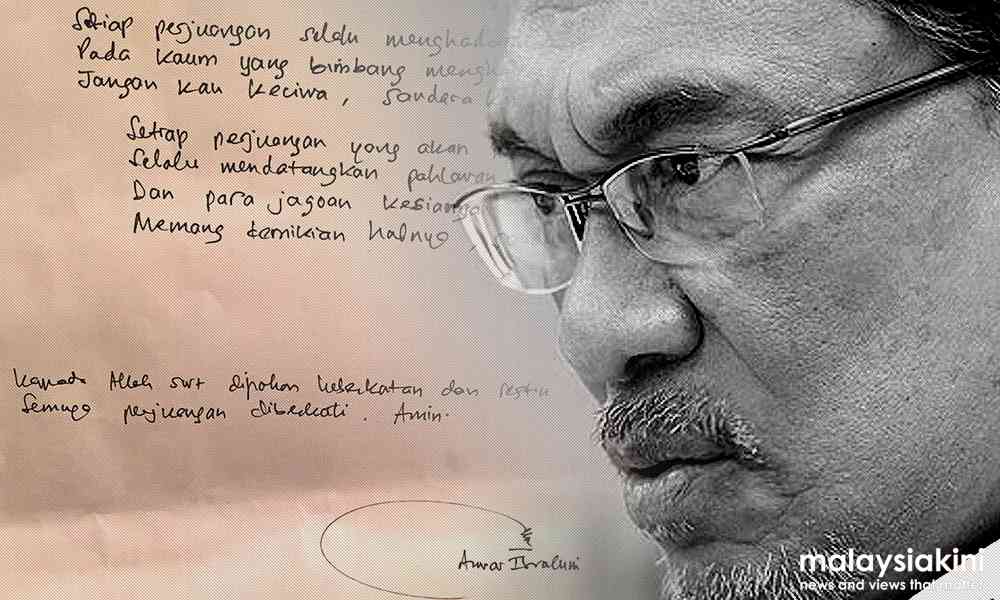 Setiap perjuangan selalu
Pada kaum yang bimbang
Jangan kau keciwa, Sandera
Setiap perjuangan yang akan
Selalu mendatangkan pahlawan
Dan para jagoan kesiangan
Memang demikian halnya,
Kepada Allah swt dipohon keberkatan dan restu
Semuga perjuangan diberkati. Amin.
Anwar Ibrahim
malaysiakini
news and views that matter